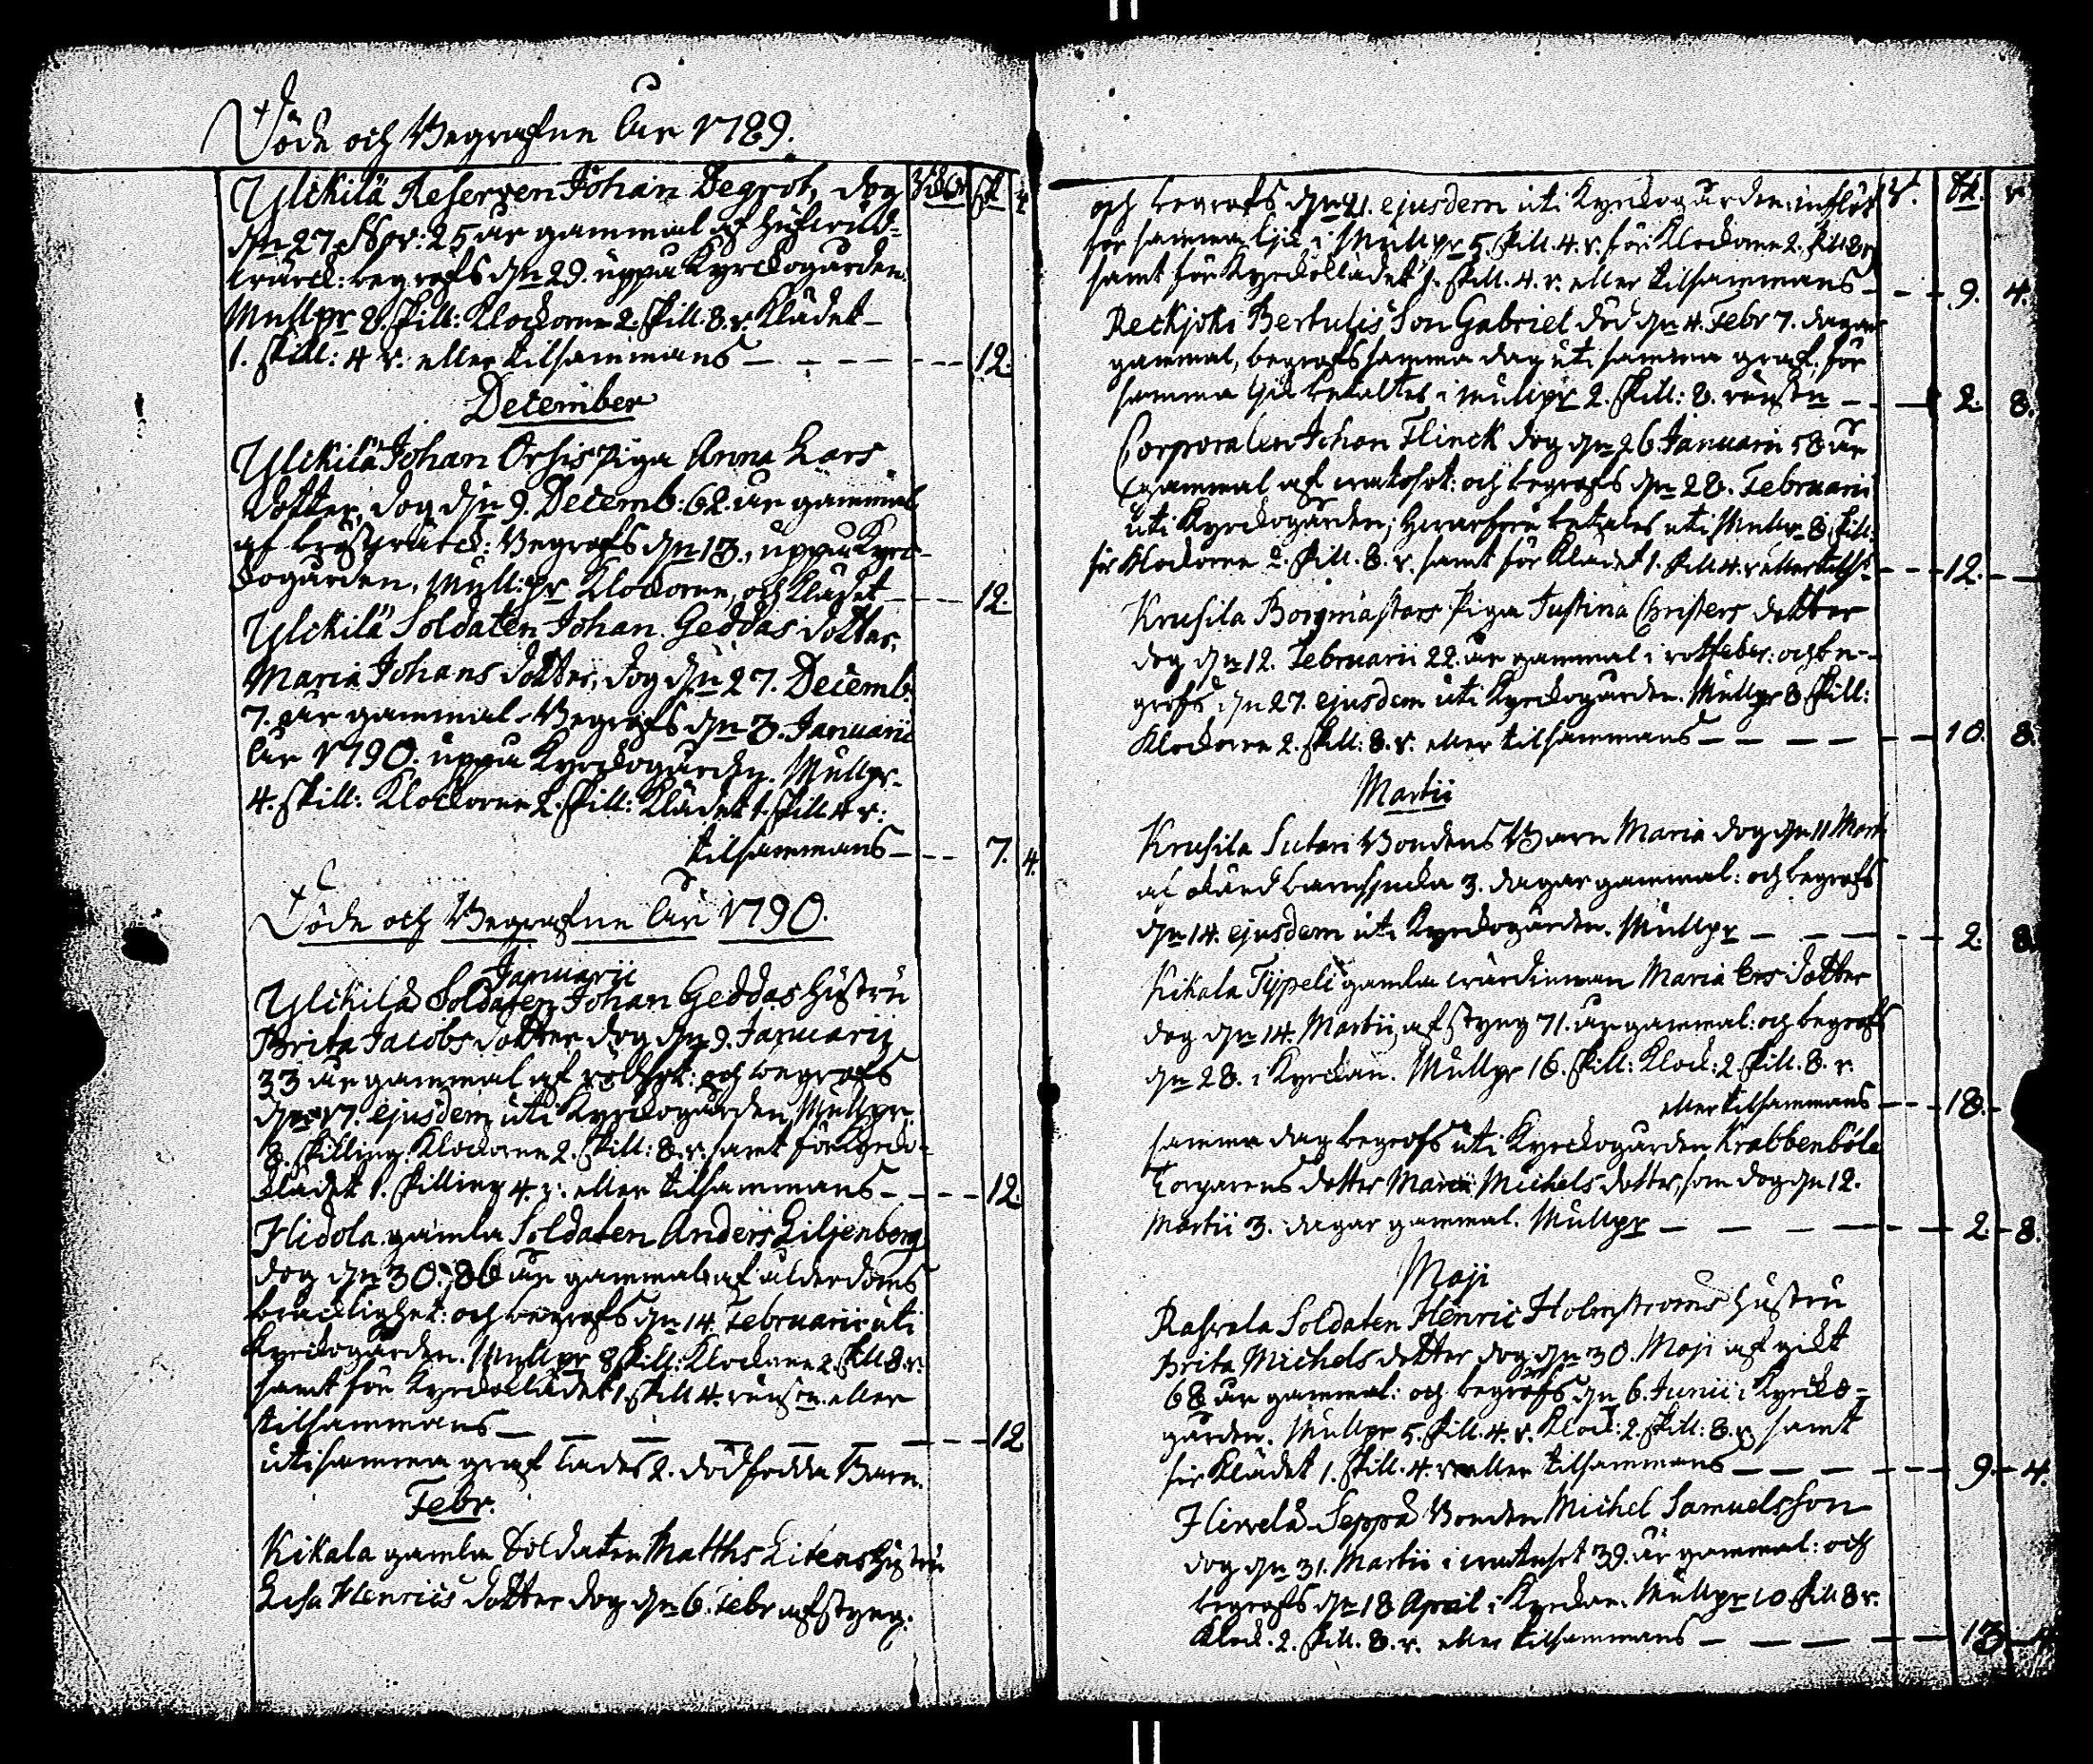 Döde och Begrafne År 1789.
Ylikilä Reserven Johan Degrot, dog
dn 27. Nov: 25 år gammal af hufvud-
wärck: begrofs dn 29. uppå Kyrckogården.
Mullpr 8. skill: Klockorne 2. skill. 8. r. Klädet
1. skill: 4 r. eller tilsammans — 12.
December
Ylikilä Johan Orhis piga Anna Lars
dotter, dog dn 9. Decemb: 62. år gammal
af bröstwärck: Begrofs dn 13., uppå Kyrc-
kogården, Mull:pr Klockorne, och Klädet — 12.
Ylikilä Soldaten Johan Geddas dotter,
Maria Johans dotter, dog dn 27. Decemb.
7. år gammal. Begrofs dn 3. Januarii
År 1790. uppå Kyrckogården. Mullpr.
4. skill: Klockorne 2. skill: Klädet 1. skill 4 r:
tilsammans — 7. 4.
Döde och Begrafne År 1790.
Januarii
Ylikilä Soldaten Johan Geddas Hustru
Brita Jacobs dotter dog dn 9. Januarii
33 år gammal af rötsot: och begrofs
dn 17. ejusdem uti Kyrckogården, Mullpr.
8. skilling. Klockorne 2. skill: 8. r. samt för Kyrcko-
klädet 1. skilling 4. r. eller tilsammans — 12.
Hidola gamla Soldaten Anders Liljenberg
dog dn 30. 86 år gammal af ålderdoms
bräcklighet: och begrofs dn 14. Februarii uti
Kyrckogården. Mullpr 8 skill: Klockorne 2. skill 8. r.
samt för Kyrckoklädet 1. skill 4. runstn. eller
tilsammans — 12
uti samma graf lades 2. dödfödda Barn.
Febr.
Kikala gamla Soldaten Matths Litens Hustru
Lisa Henrics dotter dog dn 6. Febr af styng.
och begrofs dn 21. ejusdem uti Kyrckogården: inflöt r. sk. r
för samma lik i Mullpr 5. skill. 4. r. för Klockorne 2. skill 8 r
samt för Kyrckoklädet 1. skill. 4. r. eller tilsammans — 9. 4.
Reckjoki Bertulis Son Gabriel död dn 4. Febr 7. dagar
gammal, begrofs samma dag uti samma graf. för
samma lik betaltes i mullpr 2. skill: 8. runstn — 2. 8.
Corporalen Johan Flinck dog dn 26 Januarii 58 år
gammal af watusot: och begrofs dn 28. Februarii
uti Kyrckogården; Herarföre betales uti Mullpr 8. skill.
för Klockorne 2. skill. 8. r. samt för Klädet 1. skill 4. r eller tills: — 12.
Krusila Borgmästars Piga Justina Christers dotter
dog dn 12. Februarii 22. år gammal i rötfeber: och be-
grofs dn 27. ejusdem uti Kyrckogården. Mullpr 8 skill:
Klockorne 2. skill: 8. r. eller tilsammans — 10. 8.
Martii
Krusila Sutari Bondens Barn Maria dog dn 11 Marti
af okänd barnsjucka 3. dagar gammal: och begrofs
dn 14. ejusdem uti Kyrckogården. Mullpr — 2. 8.
Kikala Typpeli gamla wärdinnan Maria Ers dotter
dog dn 14. Martii af styng 71. år gammal: och begrofs
dn 28. i Kyrckan. Mullpr 16. skill: Klock: 2. skill. 8. r.
eller tilsammans — 18.
samma dag begrofs uti Kyrckogården Krabbenböle
Torparens dotter Maria Michels dotter, som dog dn 12.
Martii 3. dagar gammal. Mullpr — 2. 8.
Maji
Rasvala Soldaten Henric Holmströms Hustru
Brita Michels dotter dog dn 30. Maji af gickt
68 år gammal: och begrofs dn 6. Junii i Kyrcko-
gården. Mullpr 5. skill. 4. r. Klock: 2. skill: 8. r. samt
för Klädet 1. skill. 4. r. eller tilsammans — 9. 4.
Hirvelä Seppä Bonden Michel Samuelsson
dog dn 31. Martii i watusot 39. år gammal: och
begrofs dn 18 April i Kyrckan. Mullpr 10 skill 8 r.
Klock. 2. skill. 8. r. eller tilsammans — 13 4